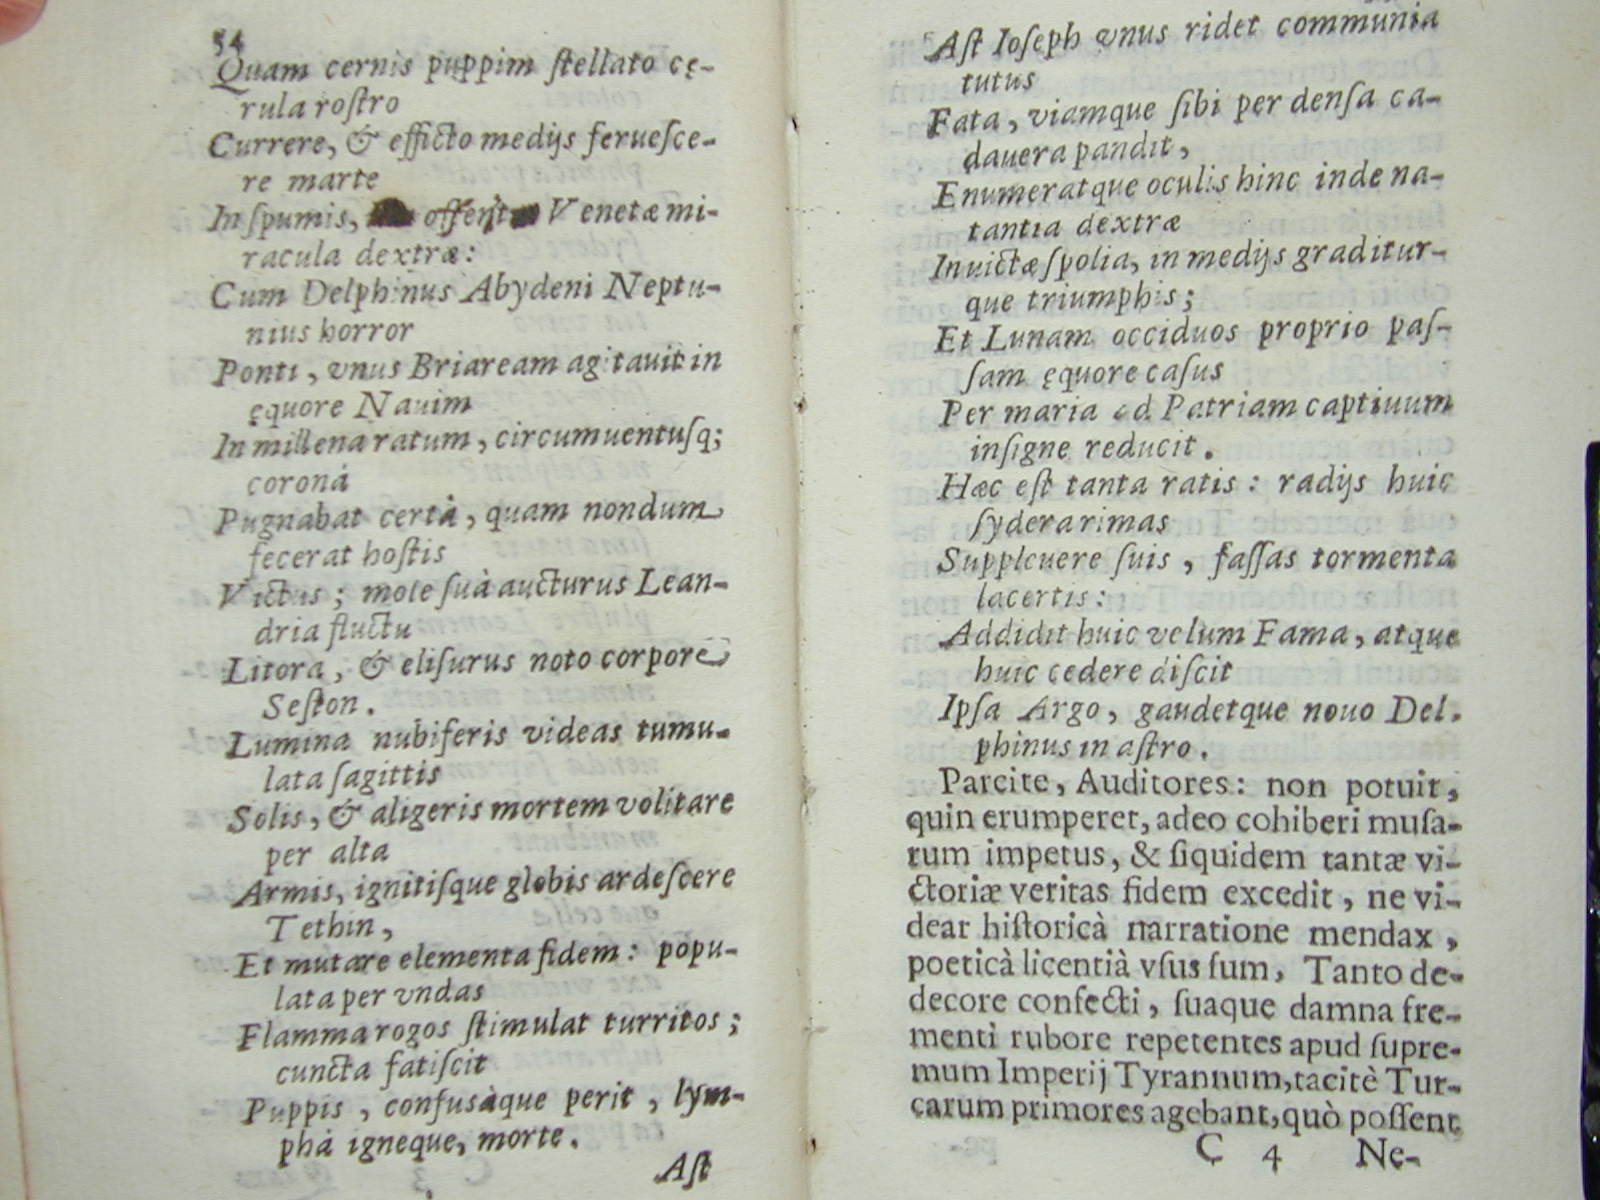 54
Quam cernis puppim ſtellato cę-
rula roſtro
Currere, & efficto medijs ferueſce-
re marte
In ſpumis, Venetæ mi-
racula dextræ:
Cum Delphinus Abydeni Neptu-
nius horror
Ponti, vnus Briaream agitauit in
ęquore Nauim
In millena ratum, circumuentuſq;
coronà
Pugnabat certà, quam nondum
fecerat hoſtis
Victus; mole ſuà aucturus Lean-
dria fluctu
Litora, & eliſurus noto corpore
Seſton.
Lumina nubiferis videas tumu-
lata ſagittis
Solis, & aligeris mortem volitare
per alta
Armis, ignitiſque globis ardeſcere
Tethin,
Et mutare elementa fidem: popu-
lata per vndas
Flamma rogos ſtimulat turritos;
cuncta fatiſcit
Puppis, confusàque perit, lym-
phà igneque, morte.
Aſt
Aſt Ioſeph vnus ridet communia
tutus
Fata, viamque ſibi per denſa ca-
dauera pandit,
Enumeratque oculis hinc inde na-
tantia dextræ
Inuictæ ſpolia, in medijs graditur-
que triumphis;
Et Lunam occiduos proprio paſ-
ſam ęquore caſus
Per maria ad Patriam captiuum
inſigne reducit.
Hæc eſt tanta ratis: radijs huic
ſydera rimas
Suppleuere ſuis, faſſas tormenta
lacertis:
Addidit huic velum Fama, atque
huic cedere diſcit
Ipſa Argo, gaudetque nouo Del.
phinus in aſtro.
Parcite, Auditores: non potuit,
quin erumperet, adeo cohiberi muſa-
rum impetus, & ſiquidem tantæ vi-
ctoriæ veritas fidem excedit, ne vi-
dear hiſtoricà narratione mendax,
poeticà licentià vſus ſum, Tanto de-
decore confecti, ſuaque damna fre-
menti rubore repetentes apud ſupre-
mum Imperij Tyrannum, tacitè Tur-
carum primores agebant, quò poſſent
C 4 Ne-